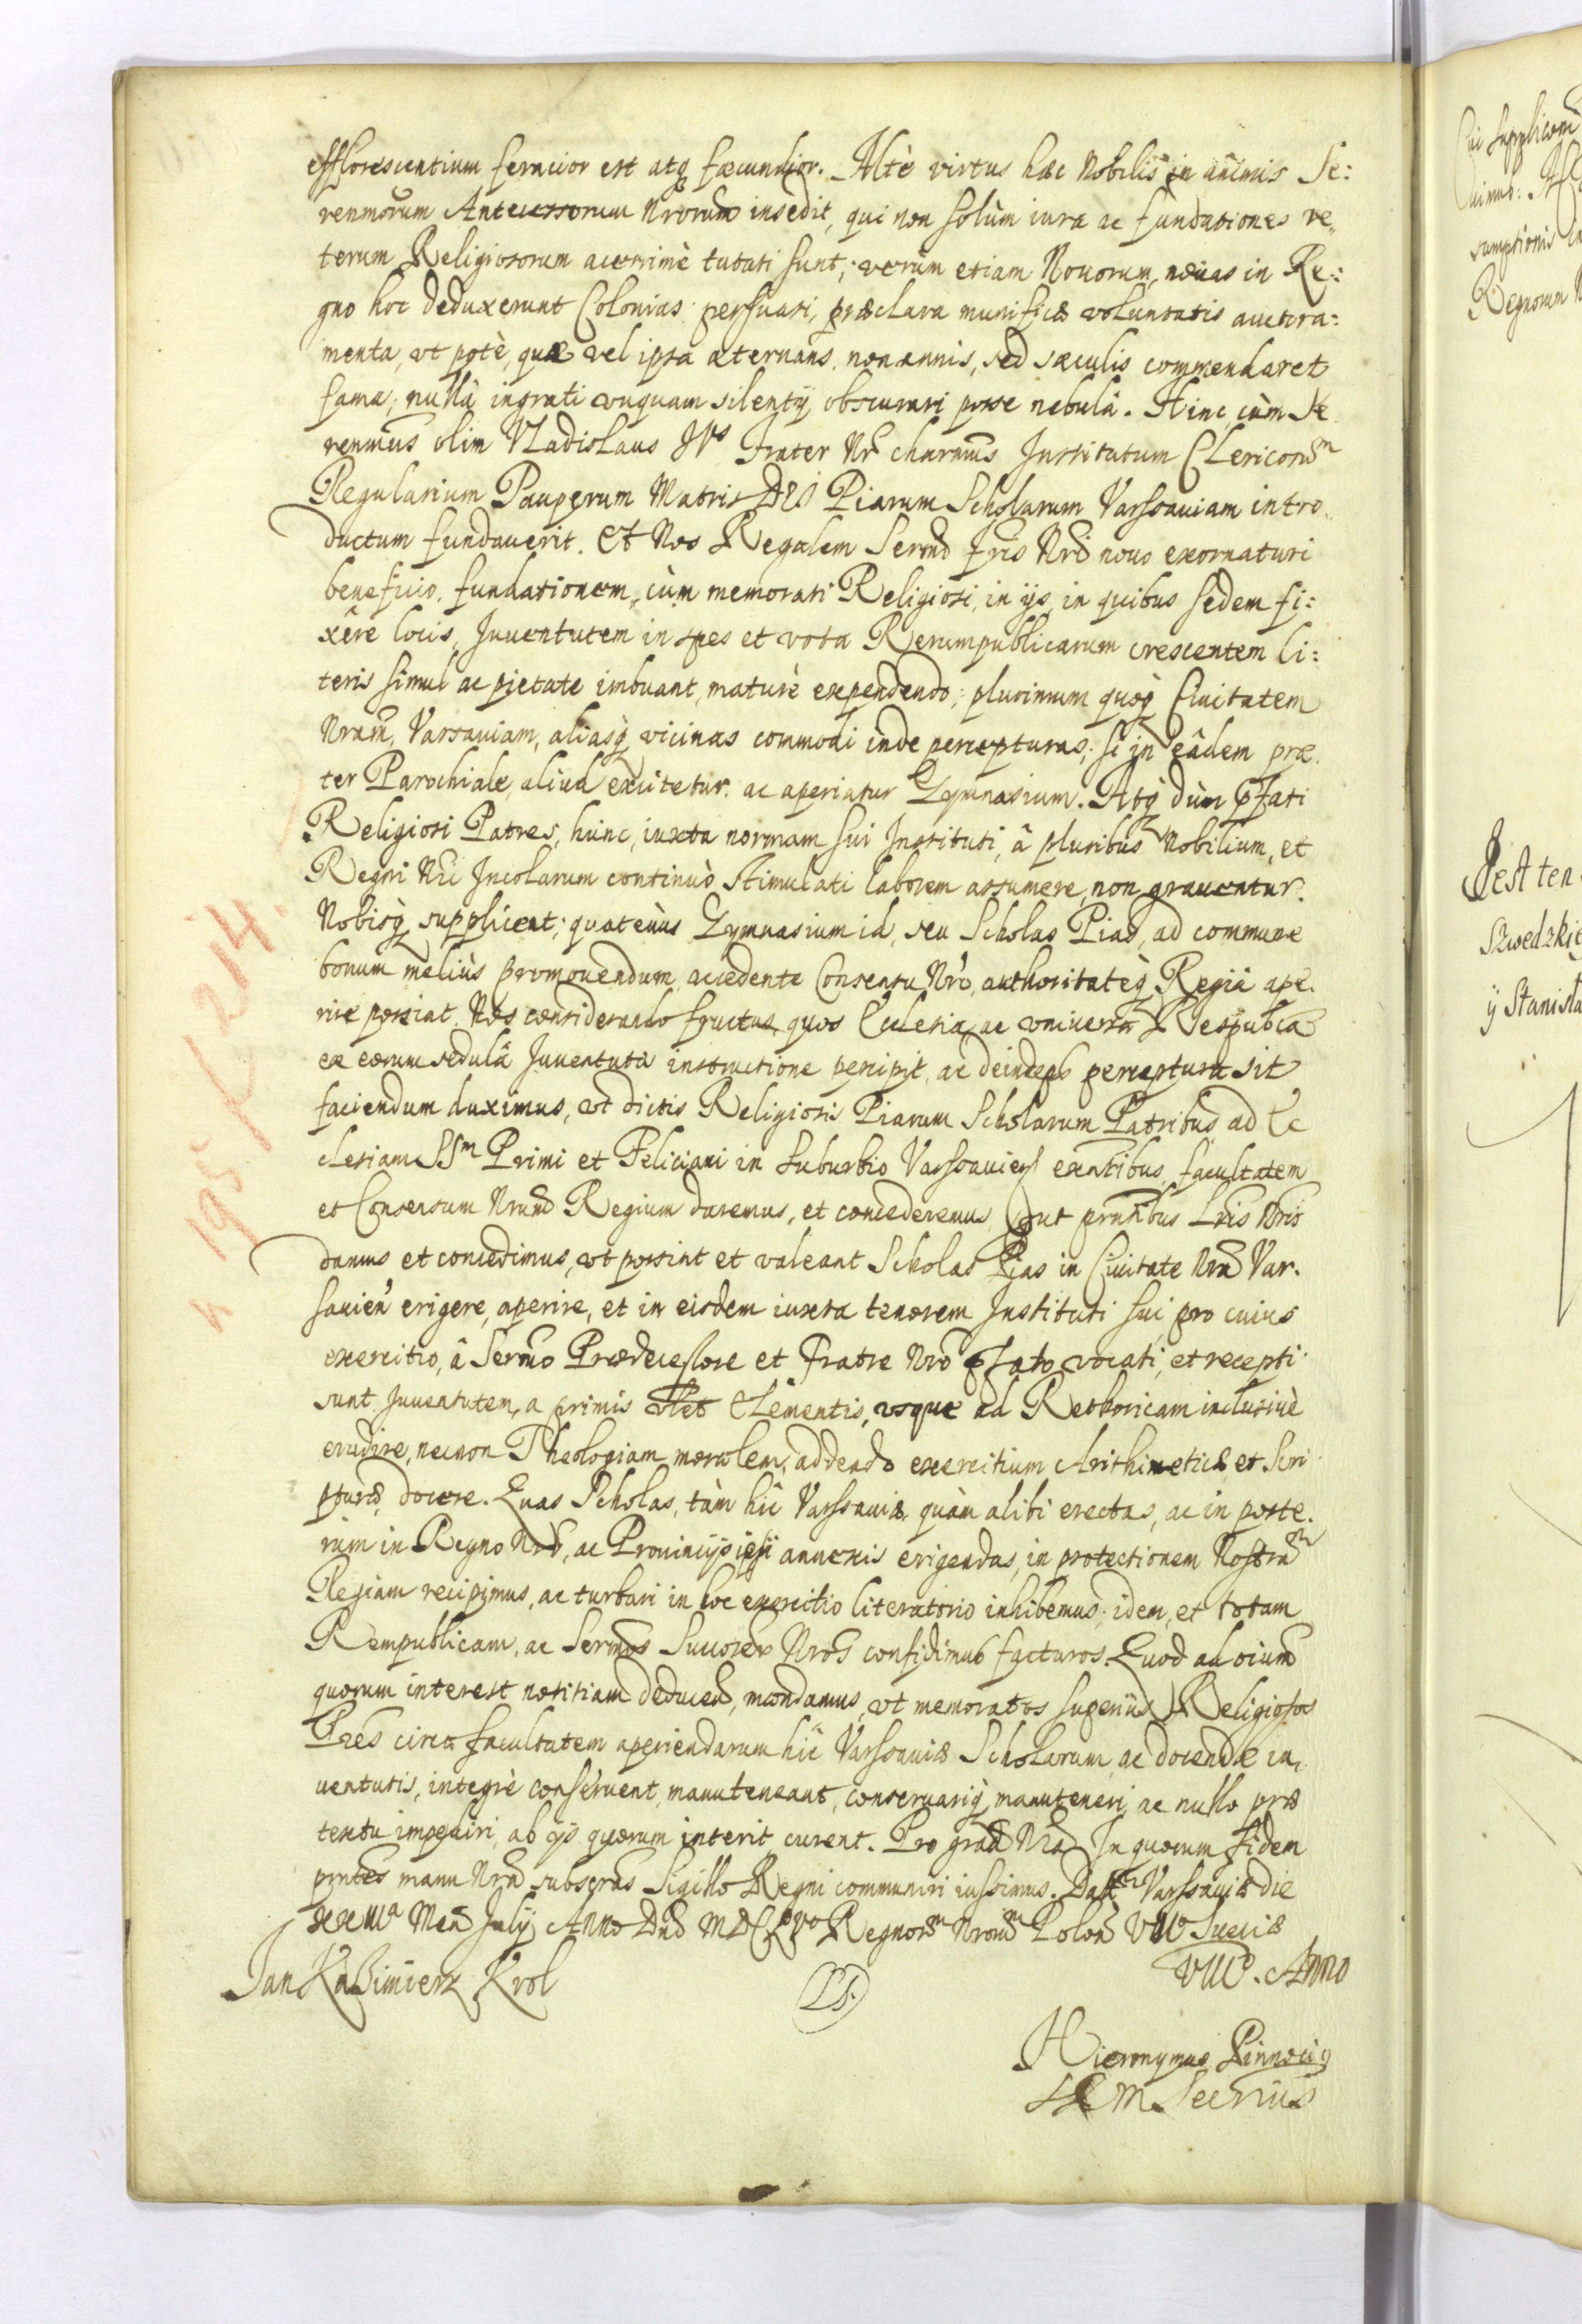 efflorescentium feracior est atq fæcundior. Altè virtus hæc Nobilis in animis Se:
renmorum Antecessorum Nrorum insedit, qui non solùm iura ac fundationes ve„
terum Religiosorum acerrimè tutati sunt; verùm etiam Nouorum, nouas in Re:
gno hoc deduxerunt Colonias: persuasi, præclara munificæ voluntatis auctora:
menta, vt potè, quæ vel ipsa æternans, non annis, sed sæculis commendaret
fama; nullâ ingrati vnquam silentij obscurari posse nebulâ. Hinc cùm Se
renmus olim Vladislaus IVs Frater Nr charmus Institutum Clericorum
Regularium Pauperum Matris DEI Piarum Scholarum Varsauiam intro„
ductum fundauerit. Et Nos Regalem Sermi Fris Nri nouo exornaturi
beneficio, fundationem, cùm memorati Religiosi, in ijs, in quibus sedem fi:
xêre locis, Juuentutem in spes et vota Rerumpublicarum crescentem li:
teris simul ac pietate imbuant, maturè expendendo; plurimum quoq Ciuitatem
Nram, Varsauiam, aliasq vicinas commodi inde percepturas; si in eâdem præ
ter Parochiale, aliud excitetur ac aperiatur Gymnasium. Atq dùm pfati
Religiosi Patres, hunc, iuxta normam sui Instituti, â pluribus Nobilium, et
Regni Nri Incolarum continuò stimulati laborem assumere, non grauentur.
Nobisq supplicent; quatenùs Gymnasium id, seu Scholas Pias, ad commune
bonum meliùs promouendum, accedente Consensu Nro, authoritateq Regiâ ape„
rire possint. Nos considerando fructus, quos Ecclesia, ac vniuersa Respublca
ex eorum sedulâ Juuentutis instructione percipit, ac deinceps perceptura sit
faciendum duximus, vt dictis Religiosis Piarum Scholarum Patribus, ad Ec
clesiam SSm Primi et Feliciani in Suburbio Varsauien exntibus, facultatem
et Consensum Nrum Regium daremus, et concederemus, put prntibus Lris Nris
damus et concedimus, vt possint et valeant Scholas Pias in Ciuitate Nra Var„
sauien erigere, aperire, et in eisdem iuxta tenorem Instituti sui, pro cuius
exercitio, â Sermo Prædecessore et Fratre Nro pfato vocati, et recepti
sunt, Juuentutem, a primis vlet Elementis, vsque ad Rethoricam inclusiuè
erudire, necnon Theologiam moralem, addendo exercitium Arithmeticæ et Scri
pturæ, docere. Quas Scholas, tàm hîc Varsauiæ, quàm alibi erectas, ac in poste„
rum in Regno Nro, ac Prouincijs ipsi annexis erigendas, in protectionem Nostram
Regiam recipimus, ac turbari in hoc exercitio literatorio inhibemus; idem, et totam
Rempublicam, ac Sermos Succores Nros confidimus facturos. Quod ad oium
quorum interest notitiam deducen, mandamus, vt memoratos superiùs Religiosos
Pres circa facultatem aperiendarum hîc Varsauiæ Scholarum, ac docendæ iu„
uentutis, integrè conseruent, manuteneant, conseruariq, manuteneri, ac nullo præ
textu impediri, ab ijs quorum interit, curent. Pro gra Nra. In quorum fidem
prntes manu Nra subscras Sigillo Regni communiri iussimus. Datt Varsauiæ die
Men July Anno Dni MDCLVo Regnorm Nrorm Polon VIIo Sueciæ
VIIIo. Anno
Jan Kazimierz Krol
LS.
Hieronymus Pinnocig
SRM Secrius
195 / 214.